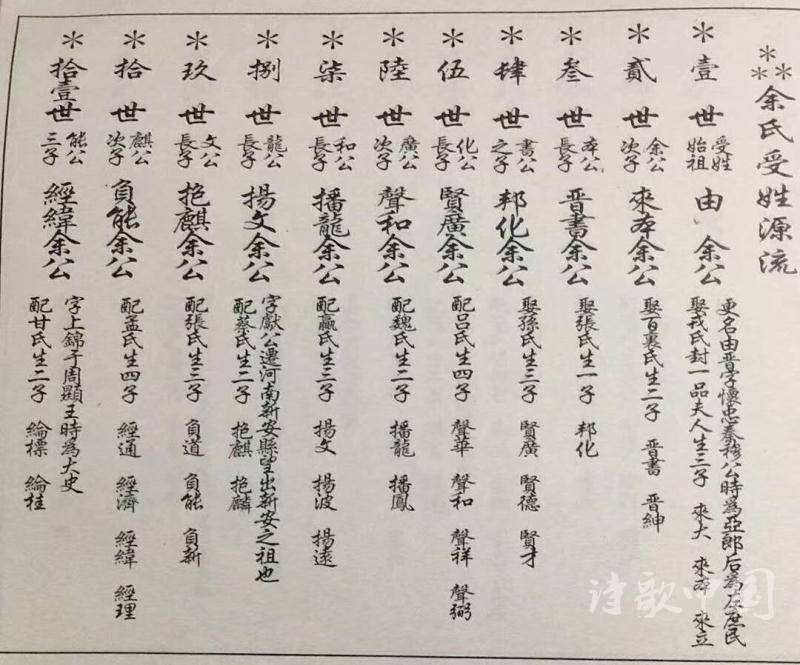 余氏受姓源流
壹世
受姓始祖
由余公
更名由晋字懷忠秦穆公時為亞郎后為左庶民
娶戎氏封一品夫人生三子 來大 來本 來立
貳世
余公次子
來本余公
娶百裏氏生二子 晋書 晋紳
叁世
本公長子
晋書余公
娶張氏生一子 邦化
肆世
書公之子
邦化余公
娶孫氏生三子 賢廣 賢德 賢才
伍世
化公長子
賢廣余公
配呂氏生四子 聲華 聲和 聲祥 聲弼
陸世
廣公次子
聲和余公
配魏氏生二子 播龍 播鳳
柒世
和公長子
播龍余公
配嬴氏生三子 揚文 揚波 揚遠
捌世
龍公長子
揚文余公
字獻公遷河南新安縣望出新安之祖也
配蔡氏生二子 抱麒 抱麟
玖世
文公長子
抱麒余公
配張氏生三子 負道 負能 負新
拾世
麒公次子
負能余公
配孟氏生四子 經通 經濟 經緯 經理
拾壹世
能公三子
經緯余公
字上錦于周顯王時為大史
配甘氏生二子 綸標 綸桂
诗歌中国